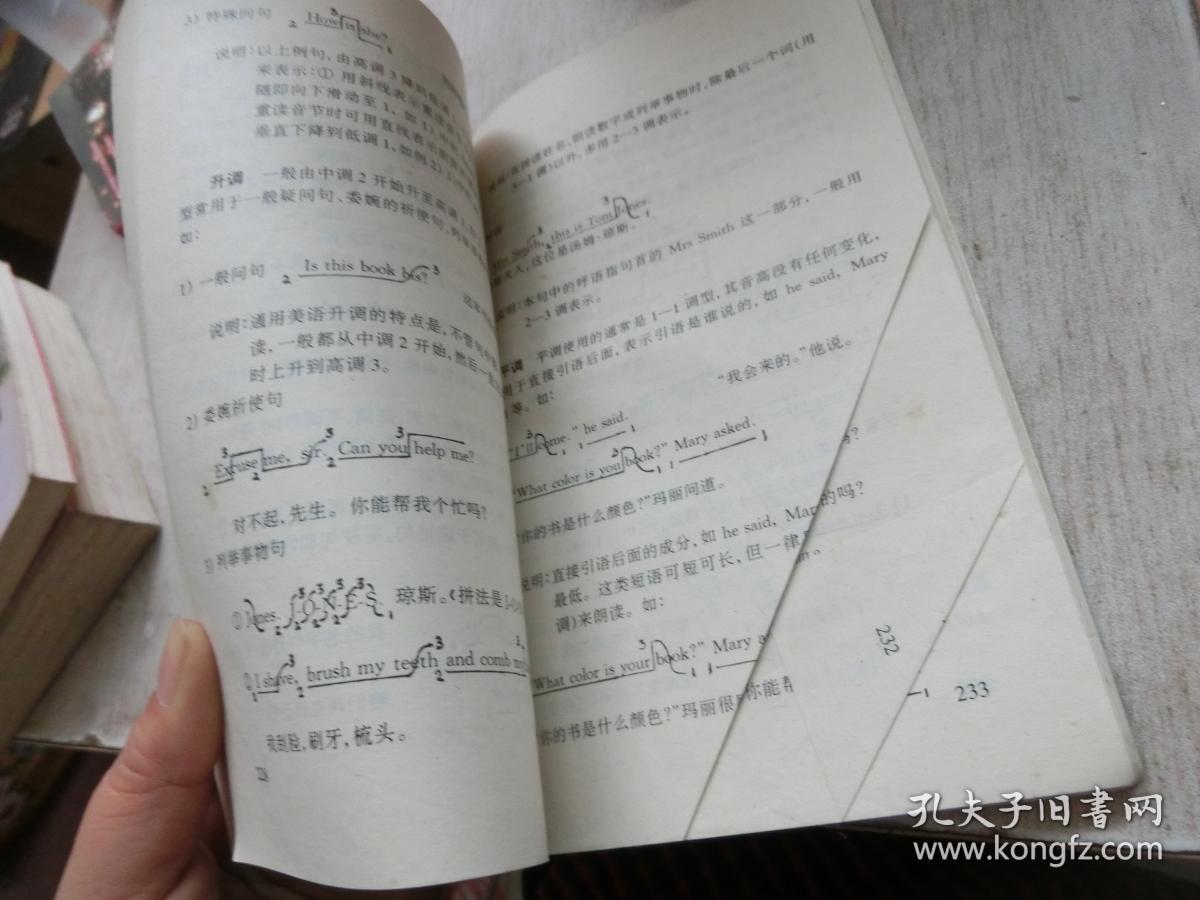 3) 特殊问句
3
2 How is she?
1
说明:以上例句,由高调3降到低调
来表示:① 用斜线表示重读音
随即向下滑动至1,如1)中
重读音节时可用直线表示
垂直下降到低调1,如例2)3)
升调 一般由中调2开始升至高调3
型常用于一般疑问句、委婉的祈使句、列举
如:
1) 一般问句
2 Is this book his? 3
说明:通用美语升调的特点是,不管句中
读,一般都从中调2开始,然后一
时上升到高调3。
2) 委婉祈使句
3 3 3
Excuse me, sir. Can you help me?
2 2 2
对不起,先生。你能帮我个忙吗?
3) 列举事物句
3 3 3 3
① Jones. J-O-N-E-S, 琼斯。(拼法是J-O-
2 2 2 2 1
3 3 3
② I shave, brush my teeth and comb my
1 2 2
我刮脸,刷牙,梳头。
228
说明:在拼读姓名、朗读数字或列举事物时,除最后一个词(用
3—1调)以外,多用2—3调表示。
3 3
Mrs Smith, this is Tom Jones.
2 1
夫人,这位是汤姆·琼斯。
说明:本句中的呼语指句首的 Mrs Smith 这一部分,一般用
2—3调表示。
平调 平调使用的通常是1—1调型,其音高没有任何变化,
用于直接引语后面,表示引语是谁说的,如 he said, Mary
等。如:
3
"I'll come." he said.
1 1
“我会来的。”他说。
3
"What color is you book?" Mary asked.
2 1 1 1
你的书是什么颜色?”玛丽问道。
说明:直接引语后面的成分,如 he said, Mar
最低。这类短语可短可长,但一律
调)来朗读。如:
3
What color is your book?" Mary a
2 1 1
你的书是什么颜色?”玛丽很
的吗?
你能
232
1
233
孔夫子旧书网
www.kongfz.com